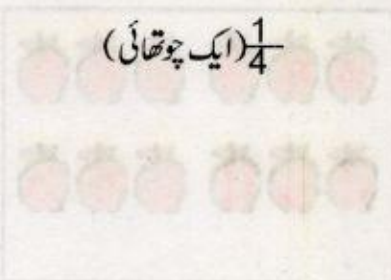 1/4 (ایک چوتھائی)